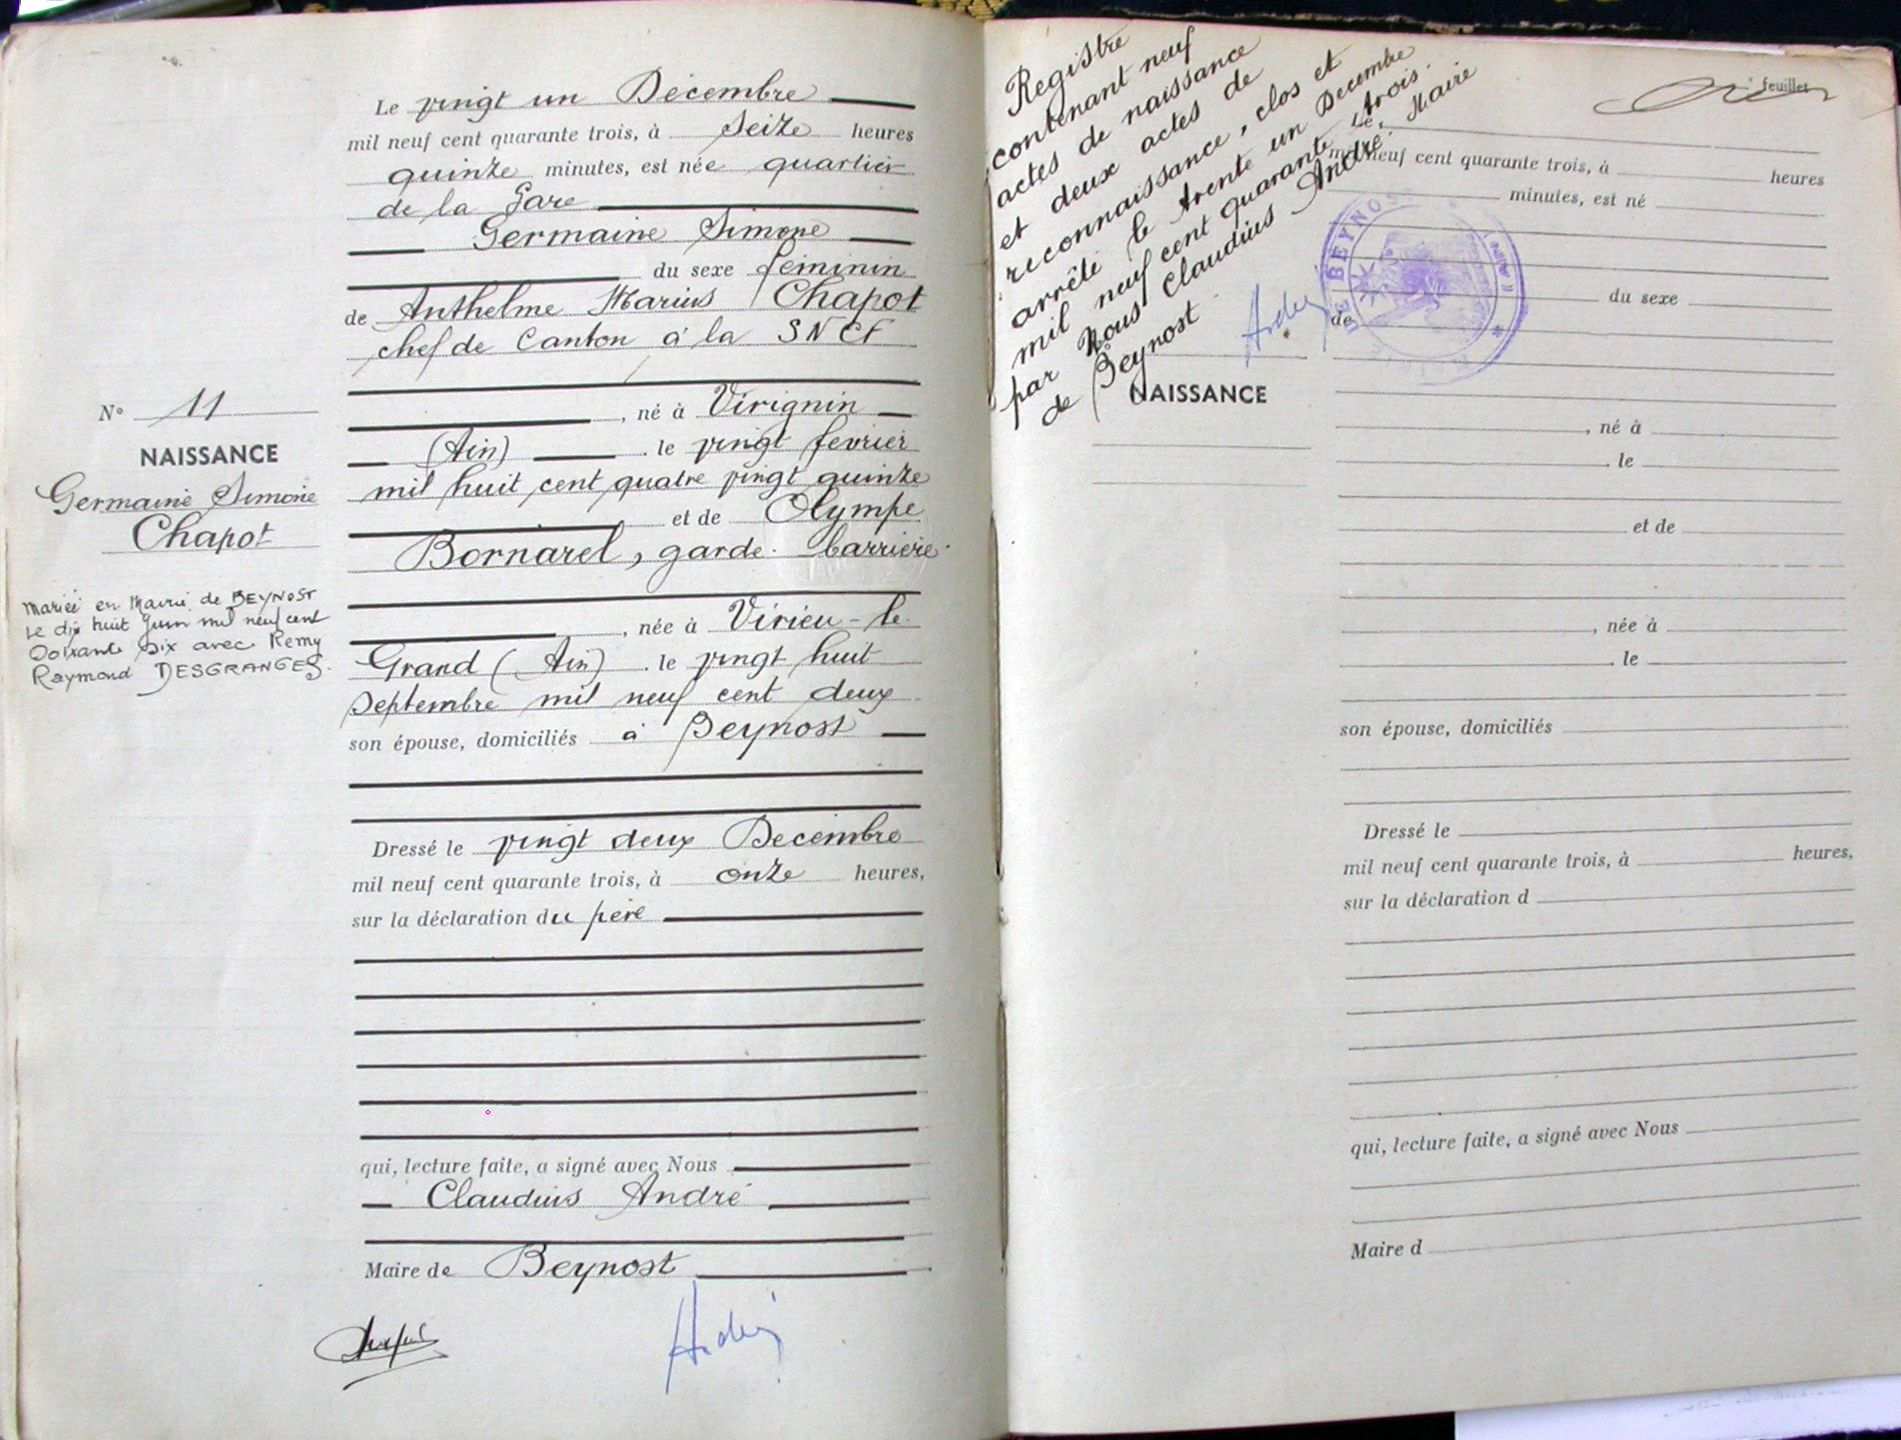 N° 11
NAISSANCE
Germaine Simone
Chapot
Mariée en Mairie de BEYNOST
le dix huit Juin mil neuf cent
soixante six avec Remy
Raymond DESGRANGES.
Le vingt un Décembre
mil neuf cent quarante trois, à seize heures
quinze minutes, est née quartier
de la Gare
Germaine Simone
du sexe féminin
de Anthelme Marius Chapot
chef de Canton à la SNCF
, né à Virignin
(Ain) . le vingt fevrier
mil huit cent quatre vingt quinze
et de Olympe
Bornarel, garde-barrière
, née à Virieu-le
Grand (Ain) . le vingt huit
Septembre mil neuf cent deux
son épouse, domiciliés à Beynost
Dressé le vingt deux Decembre
mil neuf cent quarante trois, à onze heures,
sur la déclaration du père
qui, lecture faite, a signé avec Nous
Claudius André
Maire de Beynost
Registre
contenant neuf
actes de naissance
et deux actes de
reconnaissance, clos et
arrêté le trente un Decembre
mil neuf cent quarante trois.
par Nous Claudius André, Maire
de Beynost
feuillet
Le,
mil neuf cent quarante trois, à heures
minutes, est né
du sexe
de
NAISSANCE
, né à
. le
et de
, née à
. le
son épouse, domiciliés
Dressé le
mil neuf cent quarante trois, à heures,
sur la déclaration d
qui, lecture faite, a signé avec Nous
Maire d